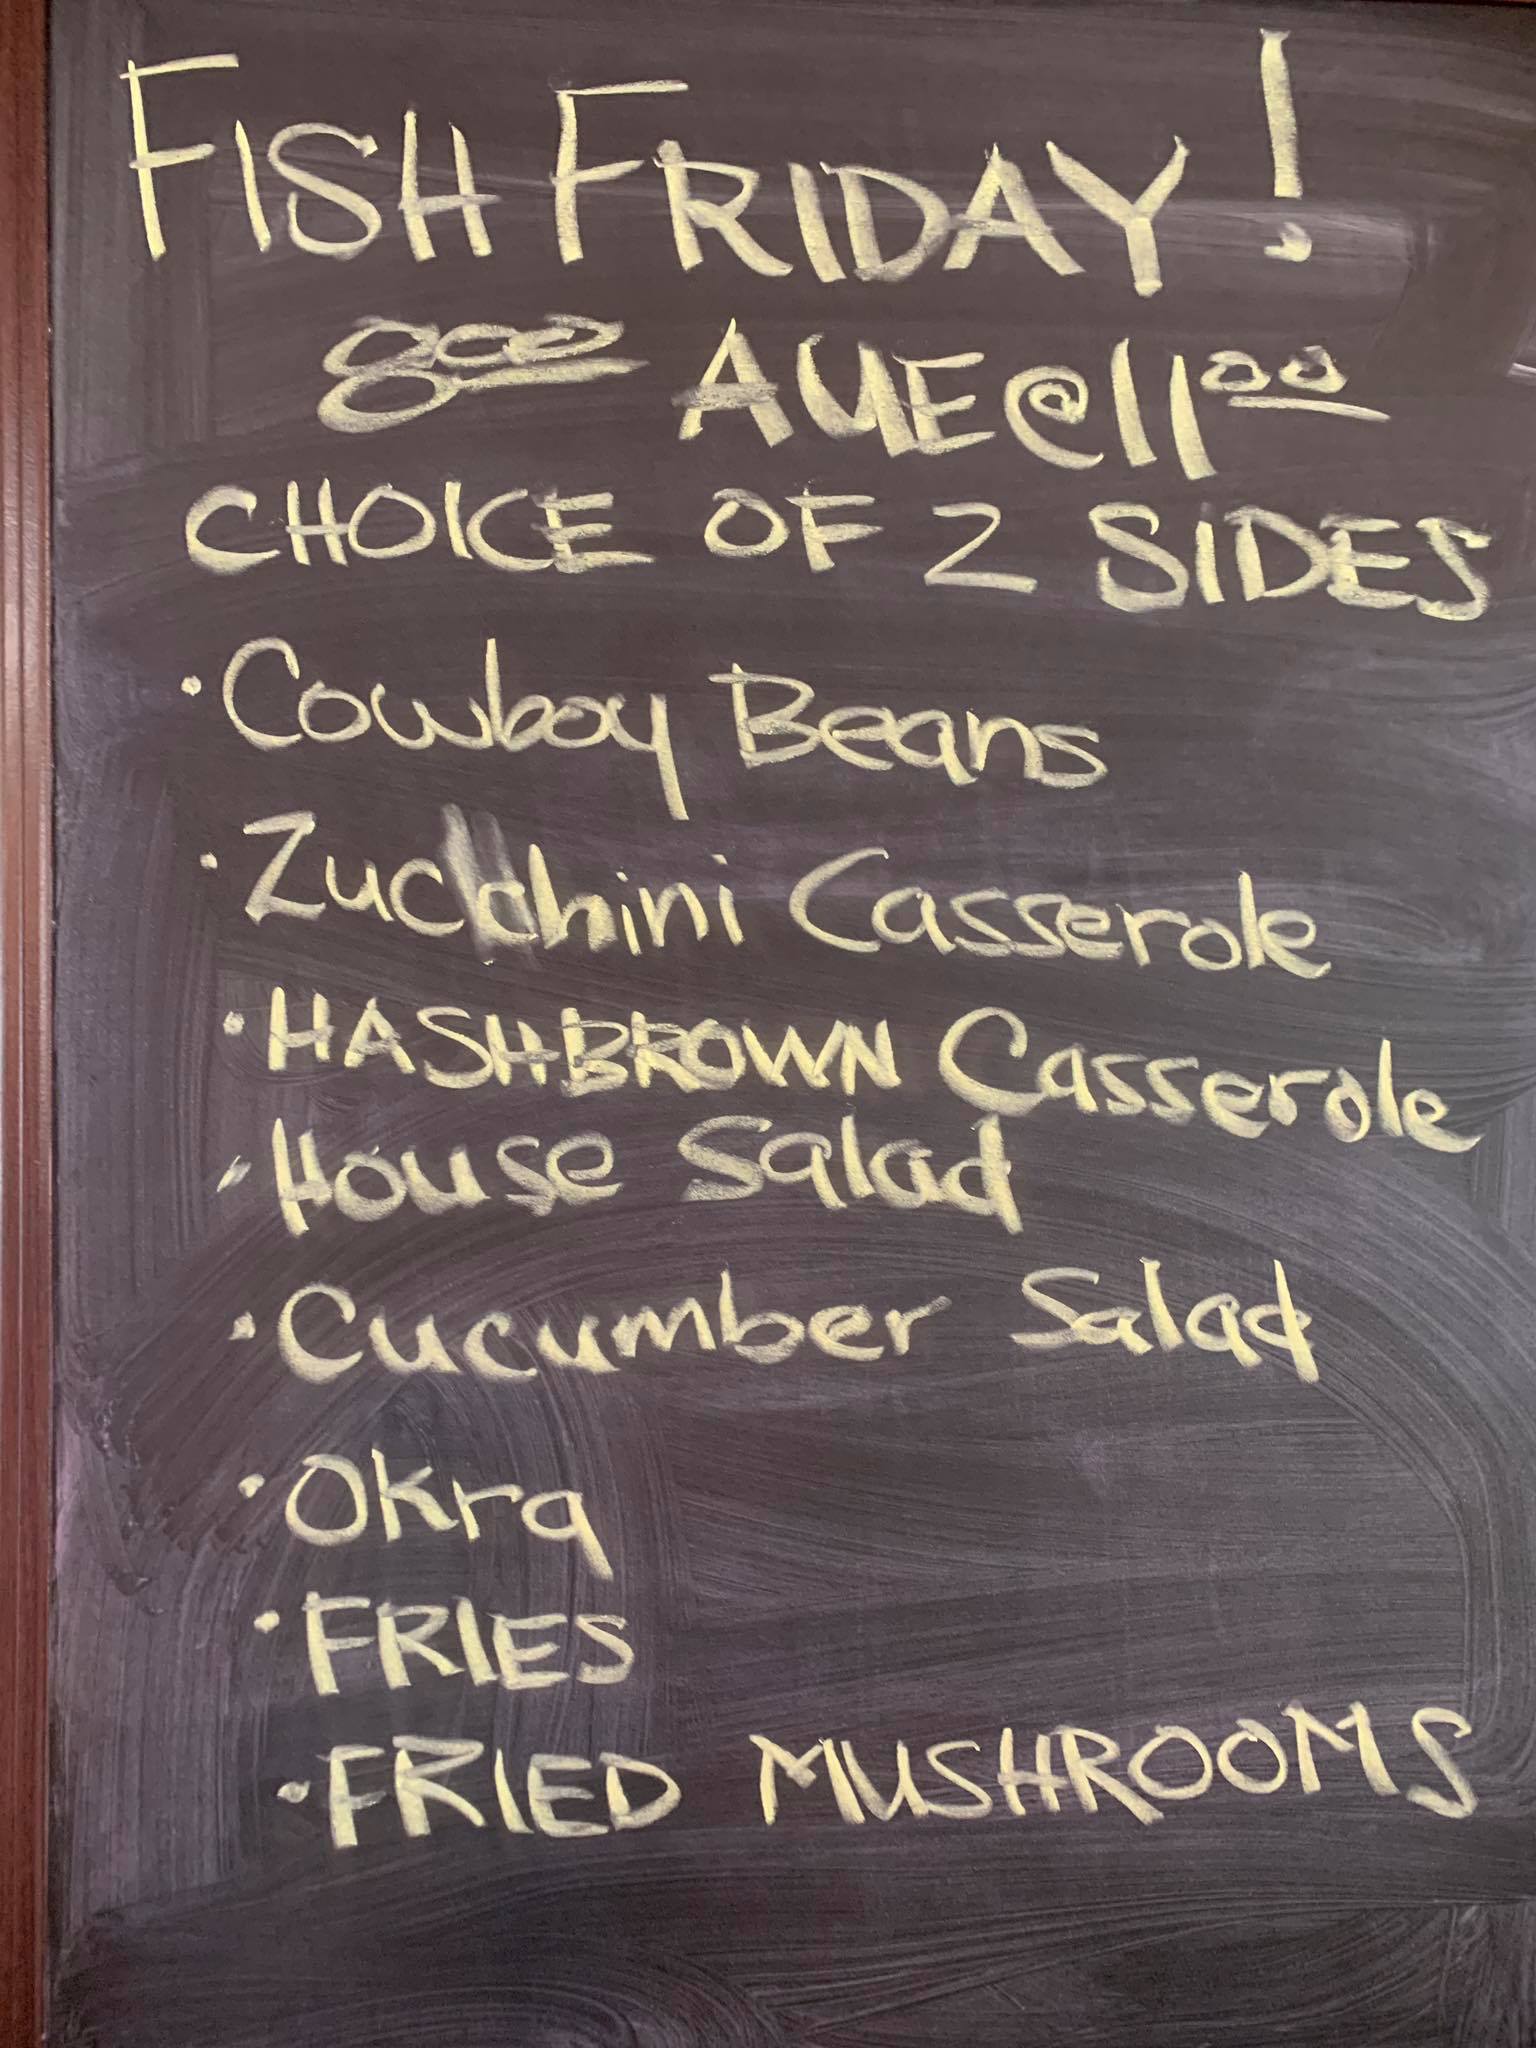 FISH FRIDAY!
800 AVE@1100
CHOICE OF 2 SIDES
· Cowboy Beans
· Zucchini Casserole
· HASHBROWN Casserole
· House Salad
· Cucumber Salad
· Okra
· FRIES
· FRIED MUSHROOMS